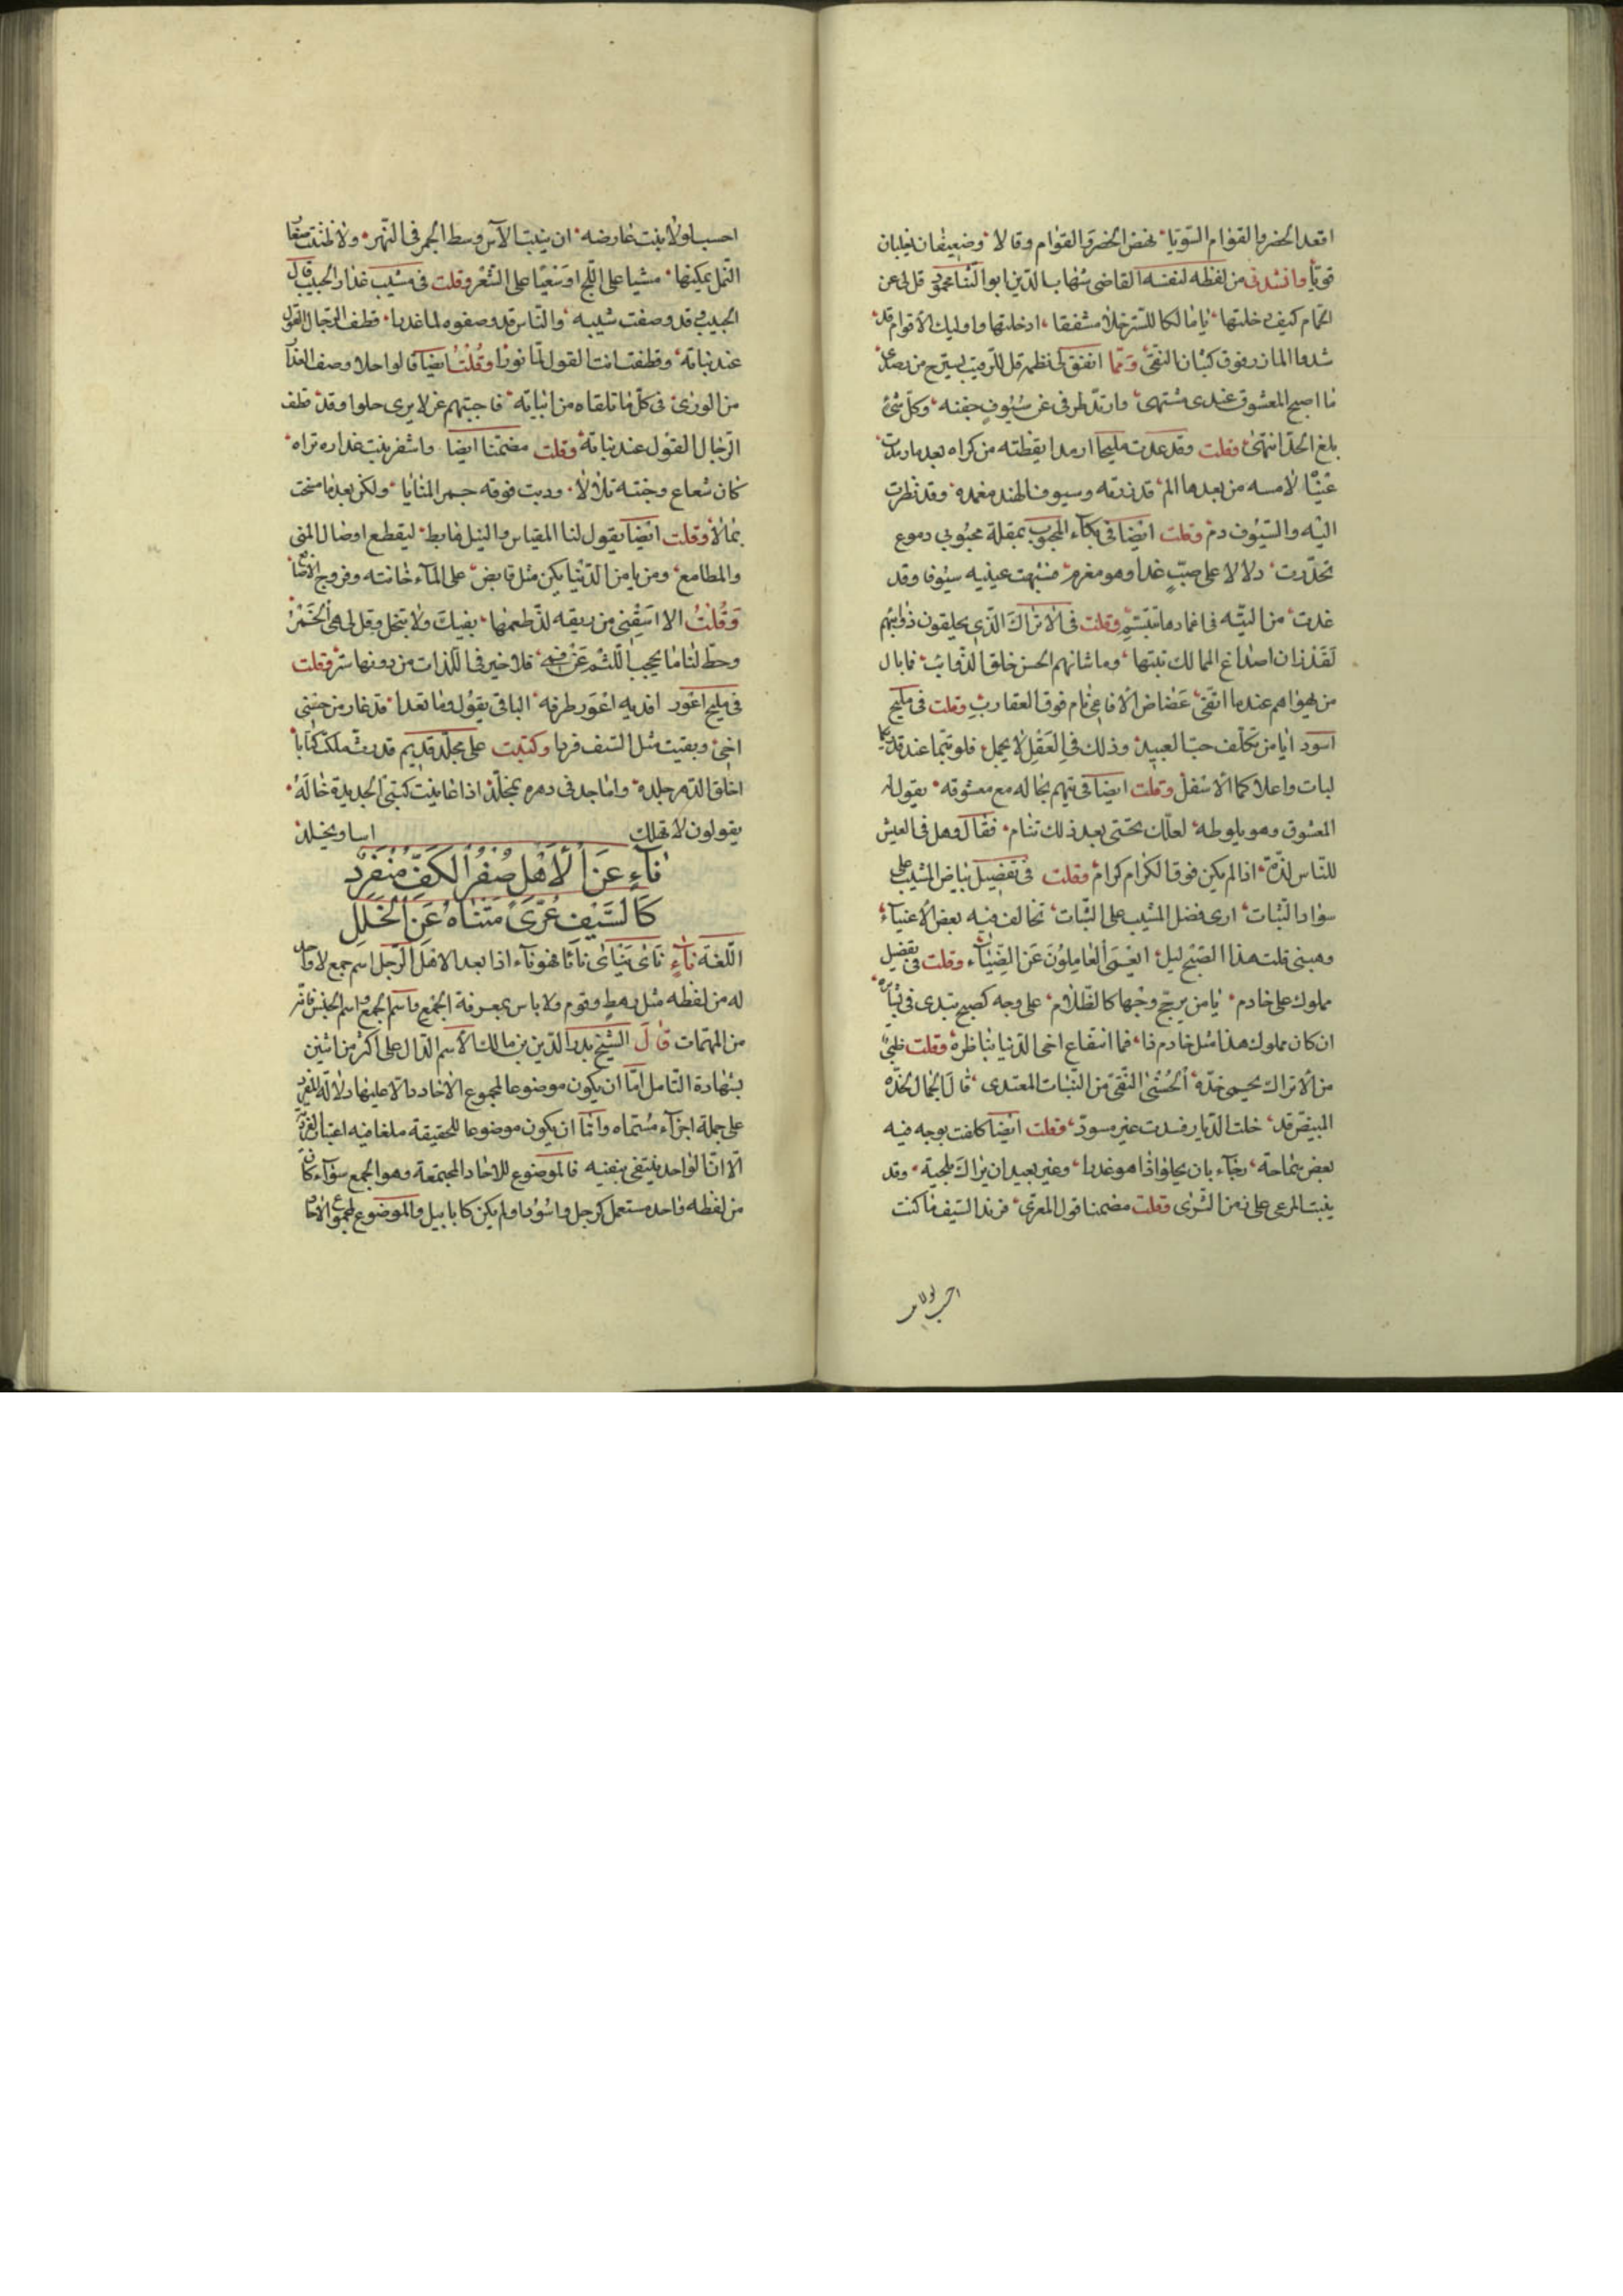 اقعد الخصر والقوام السويا نهض الخصر والقوام وقالا وضعيفان يغلبان
قويا وانشدنى من لفظه لنفسه القاضى شهاب الدين ابو الثنا محمود قل لى عن
الحمام كيف دخلتها يا مالكا للستر خلا مشفقا ادخلتها واوليك الاقوام قد
شدوا المازر فوق كثبان النقى ومما اتفق لى نظمه قل للرقيب يستريح من رصده
ما اصبح المعشوق عندى مشتهى وارتد طرفى عن سيوف جفنه وكل شئ
بلغ الحد انتهى وقلت وقد عدت مليحا ارمدا يقظته من كراه بعد ما رمدت
عيناه لامسه من بعدها الم قد زرته وسيوف الهند مغمدة وقد نظرت
اليه والسيوف دم وقلت ايضا فى بكاء المحبوب بمقلة محبوبى دموع
تحدرت دلالا على صب غدا وهو مغرم فشبهت عينيه سيوفا وقد
غدت من التيه فى اغمادها تتبسم وقلت فى الاتراك الذى يحلقون ذوايبهم
لقد زان اصداغ الممالك نبتها وما شانهم الحسن خلق الذوائب فما بال
من يهواهم عندما اتقى عضاض الافاعى نام فوق العقارب وقلت فى مليح
اسود ايا من تكلف حب العبيد وذلك فى العقل لا يجمل فلو نتما عند
لبات واعلاكما الاسفل وقلت ايضا فى متيم بحاله مع معشوقه يقول له
المعشوق وهو يلوطه لعلك تحتى بعد ذلك تنام فقال وهل فى العيش
للناس لذة اذا لم يكن فوق الكرام كرام وقلت فى تفضيل بياض المشيب على
سواد الشباب ارى فضل المشيب على الشباب تخالف فيه بعض الاغنياء
وهبنى قلت هذا الصبح ليل ايعمى العاملون عن الضياء وقلت فى تفضيل
مملوك على خادم يا من يرجح وجها كالظلام على وجه كصبح تبدى فى
ان كان مملوك هذا مثل خادم ذا فما انتفاع اخى الدنيا بناظره وقلت ظبى
من الاتراك يحمى خده الحسنى النقى من النبات المعتدى قال الجمال لخده
المبيض قد خلت الديار فسدت غير مسود وقلت ايضا كلفت بوجه فيه
بعض سماحة رجاء بان يحلو اذا هو غدرا وغير بعيد ان يراك بلحية وقد
ينبت المرعى على دمن الثرى وقلت مضمنا قول المعرى فرند السيف ما كنت
احسب ولا
احسب ولا بنت عارضه ان ينبت الآس وسط الجمر فى النهر ولا ظننت صغار
النمل يمكنها مشيا على اللج او سعيا على السعر وقلت فى مشيب عذار الحبيب قال
الحبيب وقد وصفت شيبه والناس قد وصفوه لما عذرا قطف الرجال القول
عند نباته وقطفت انت القول لما نورا وقلت ايضا قالوا حلا وصف العذار
من الورى فى كل ما تلقاه من ابياته فاجبتهم عن لا يرى حلوا وقد قطف
الرجال القول عند نباته وقلت مضمنا ايضا واشقر نبت عذاره تراه
كان شعاع وجنته تلالا ودبت فوقه حمر المنايا ولكن بعد ما مسخت
نمالا وقلت ايضا يقول لنا المقياس والنيل هابط ليقطع اوصال المنى
والمطامع ومن يامن الدنيا يكن مثل قابض على الماء خانته فروج الاصابع
وقلت الا اسقنى من ريقه لذ طعمها بفيك ولا تبخل وقل لى هى الخمر
وحط لنا ما يحجب اللثم عن فمه فلا خير فى اللذات من دونها ستر وقلت
فى مليح اعور افديه اعور طرفه الباقى يقول وما تعدا قد غار من حسنى
اخى وبقيت مثل السيف فردا وكتبت على مجلد قديم قد رث ملكت كتابا
اخلق الدهر جلده وما احد فى دهره بمخلد اذا عاينت كتبى الجديدة حاله
يقولون لا تهلك اسا وتجلد
ناء عن الاهل صفر الكف منفرد
كالسيف عرى متناه عن الخلل
اللغة ناء ناى يناى نايا فهو ناء اذا بعد الاهل اهل الرجل اسم جمع لا واحد
له من لفظه مثل رهط وقوم ولا باس بمعرفة الجمع واسم الجمع واسم الجنس فانه
من المهمات قال الشيخ بدر الدين بن مالك الاسم الدال على اكثر من اثنين
بشهادة التامل اما ان يكون موضوعا لمجموع الاحاد دالا عليها دلالة المفرد
على جملة اجزاء مسماه واما ان يكون موضوعا للحقيقة ملغا فيه اعتبار الفردية
الا ان الواحد ينتفى بنفيه فالموضوع للاحاد المجتمعة وهو الجمع سواء كان
من لفظه واحد مستعمل كرجل واسود او لم يكن كابابيل والموضوع لمجموع الاحاد